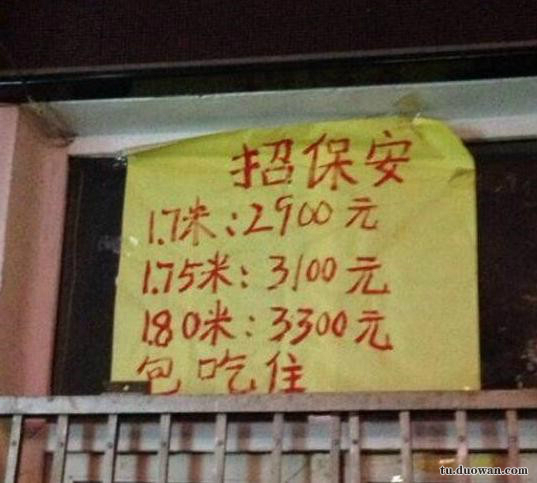 招保安
1.7米:2900元
1.75米:3100元
1.80米:3300元
包吃住
tu.duowan.com